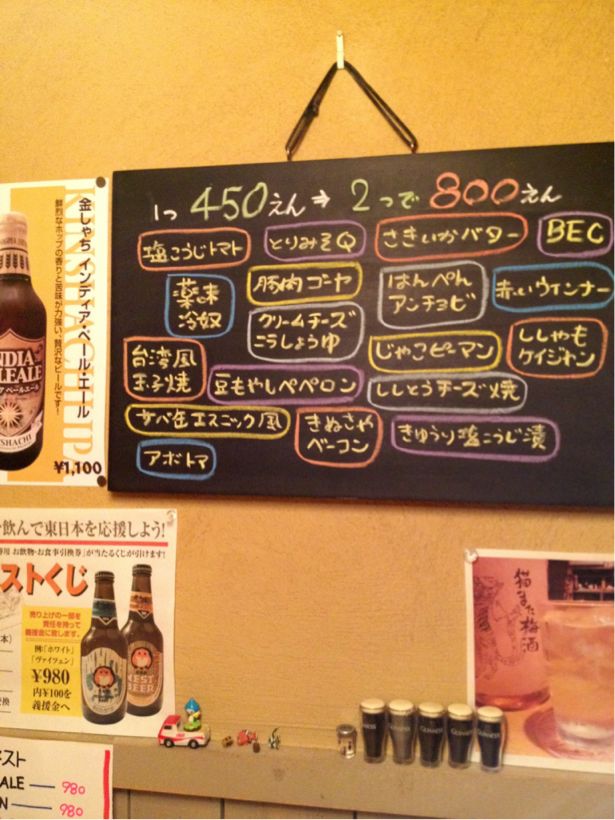 1つ 450えん ⇒ 2つで 800えん
塩こうじトマト
とりみそQ
さきいかバター
BEC
薬味
冷奴
豚肉ゴーヤ
はんぺん
アンチョビ
赤いウインナー
クリームチーズ
こうしょうゆ
台湾風
玉子焼
じゃこピーマン
ししゃも
ケイジャン
豆もやしペペロン
ししとうチーズ焼
サバ缶エスニック風
きぬさや
ベーコン
きゅうり塩こうじ漬
アボトマ
金しゃち インディア・ペール・エール
鮮烈なホップの香りと苦味が力強い、贅沢なビールです!
¥1,100
飲んで東日本を応援しよう!
お飲物・お食事引換券」が当たるくじが引けます!
ストくじ
売り上げの一部を
責任を持って
義援金に致します。
例:「ホワイト」
「ヴァイツェン」
¥980
内¥100を
義援金へ
NEST
BEER
猫また梅酒
スト
ALE — 980
N — 980
GUINNESS
GUINNESS
GUINNESS
GUINNESS
GUINNESS